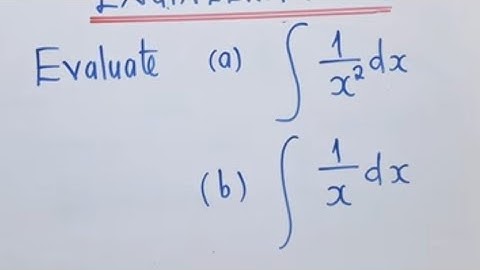 Evaluate (a) ∫ 1/x² dx
(b) ∫ 1/x dx